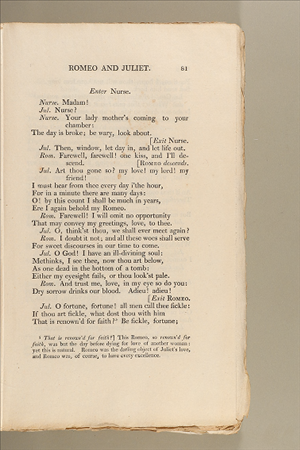 ROMEO AND JULIET. 81
Enter Nurse.
Nurse. Madam!
Jul. Nurse?
Nurse. Your lady mother's coming to your
chamber:
The day is broke; be wary, look about.
[Exit Nurse.
Jul. Then, window, let day in, and let life out.
Rom. Farewell, farewell! one kiss, and I'll de-
scend. [ROMEO descends.
Jul. Art thou gone so? my love! my lord! my
friend!
I must hear from thee every day i'the hour,
For in a minute there are many days:
O! by this count I shall be much in years,
Ere I again behold my Romeo.
Rom. Farewell! I will omit no opportunity
That may convey my greetings, love, to thee.
Jul. O, think'st thou, we shall ever meet again?
Rom. I doubt it not; and all these woes shall serve
For sweet discourses in our time to come.
Jul. O God! I have an ill-divining soul:
Methinks, I see thee, now thou art below,
As one dead in the bottom of a tomb:
Either my eyesight fails, or thou look'st pale.
Rom. And trust me, love, in my eye so do you:
Dry sorrow drinks our blood. Adieu! adieu!
[Exit ROMEO.
Jul. O fortune, fortune! all men call thee fickle:
If thou art fickle, what dost thou with him
That is renown'd for faith? Be fickle, fortune;
That is renown'd for faith?] This Romeo, so renown'd for
faith, was but the day before dying for love of another woman:
yet this is natural. Romeo was the darling object of Juliet's love,
and Romeo was, of course, to have every excellence.